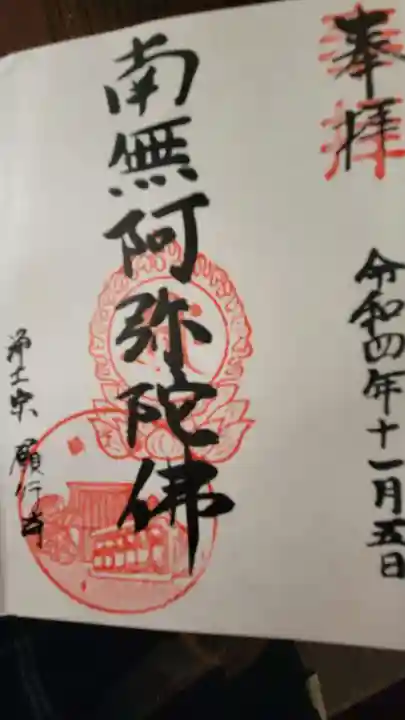 奉拝
令和四年十一月五日
南無阿弥陀佛
浄土宗 願行寺